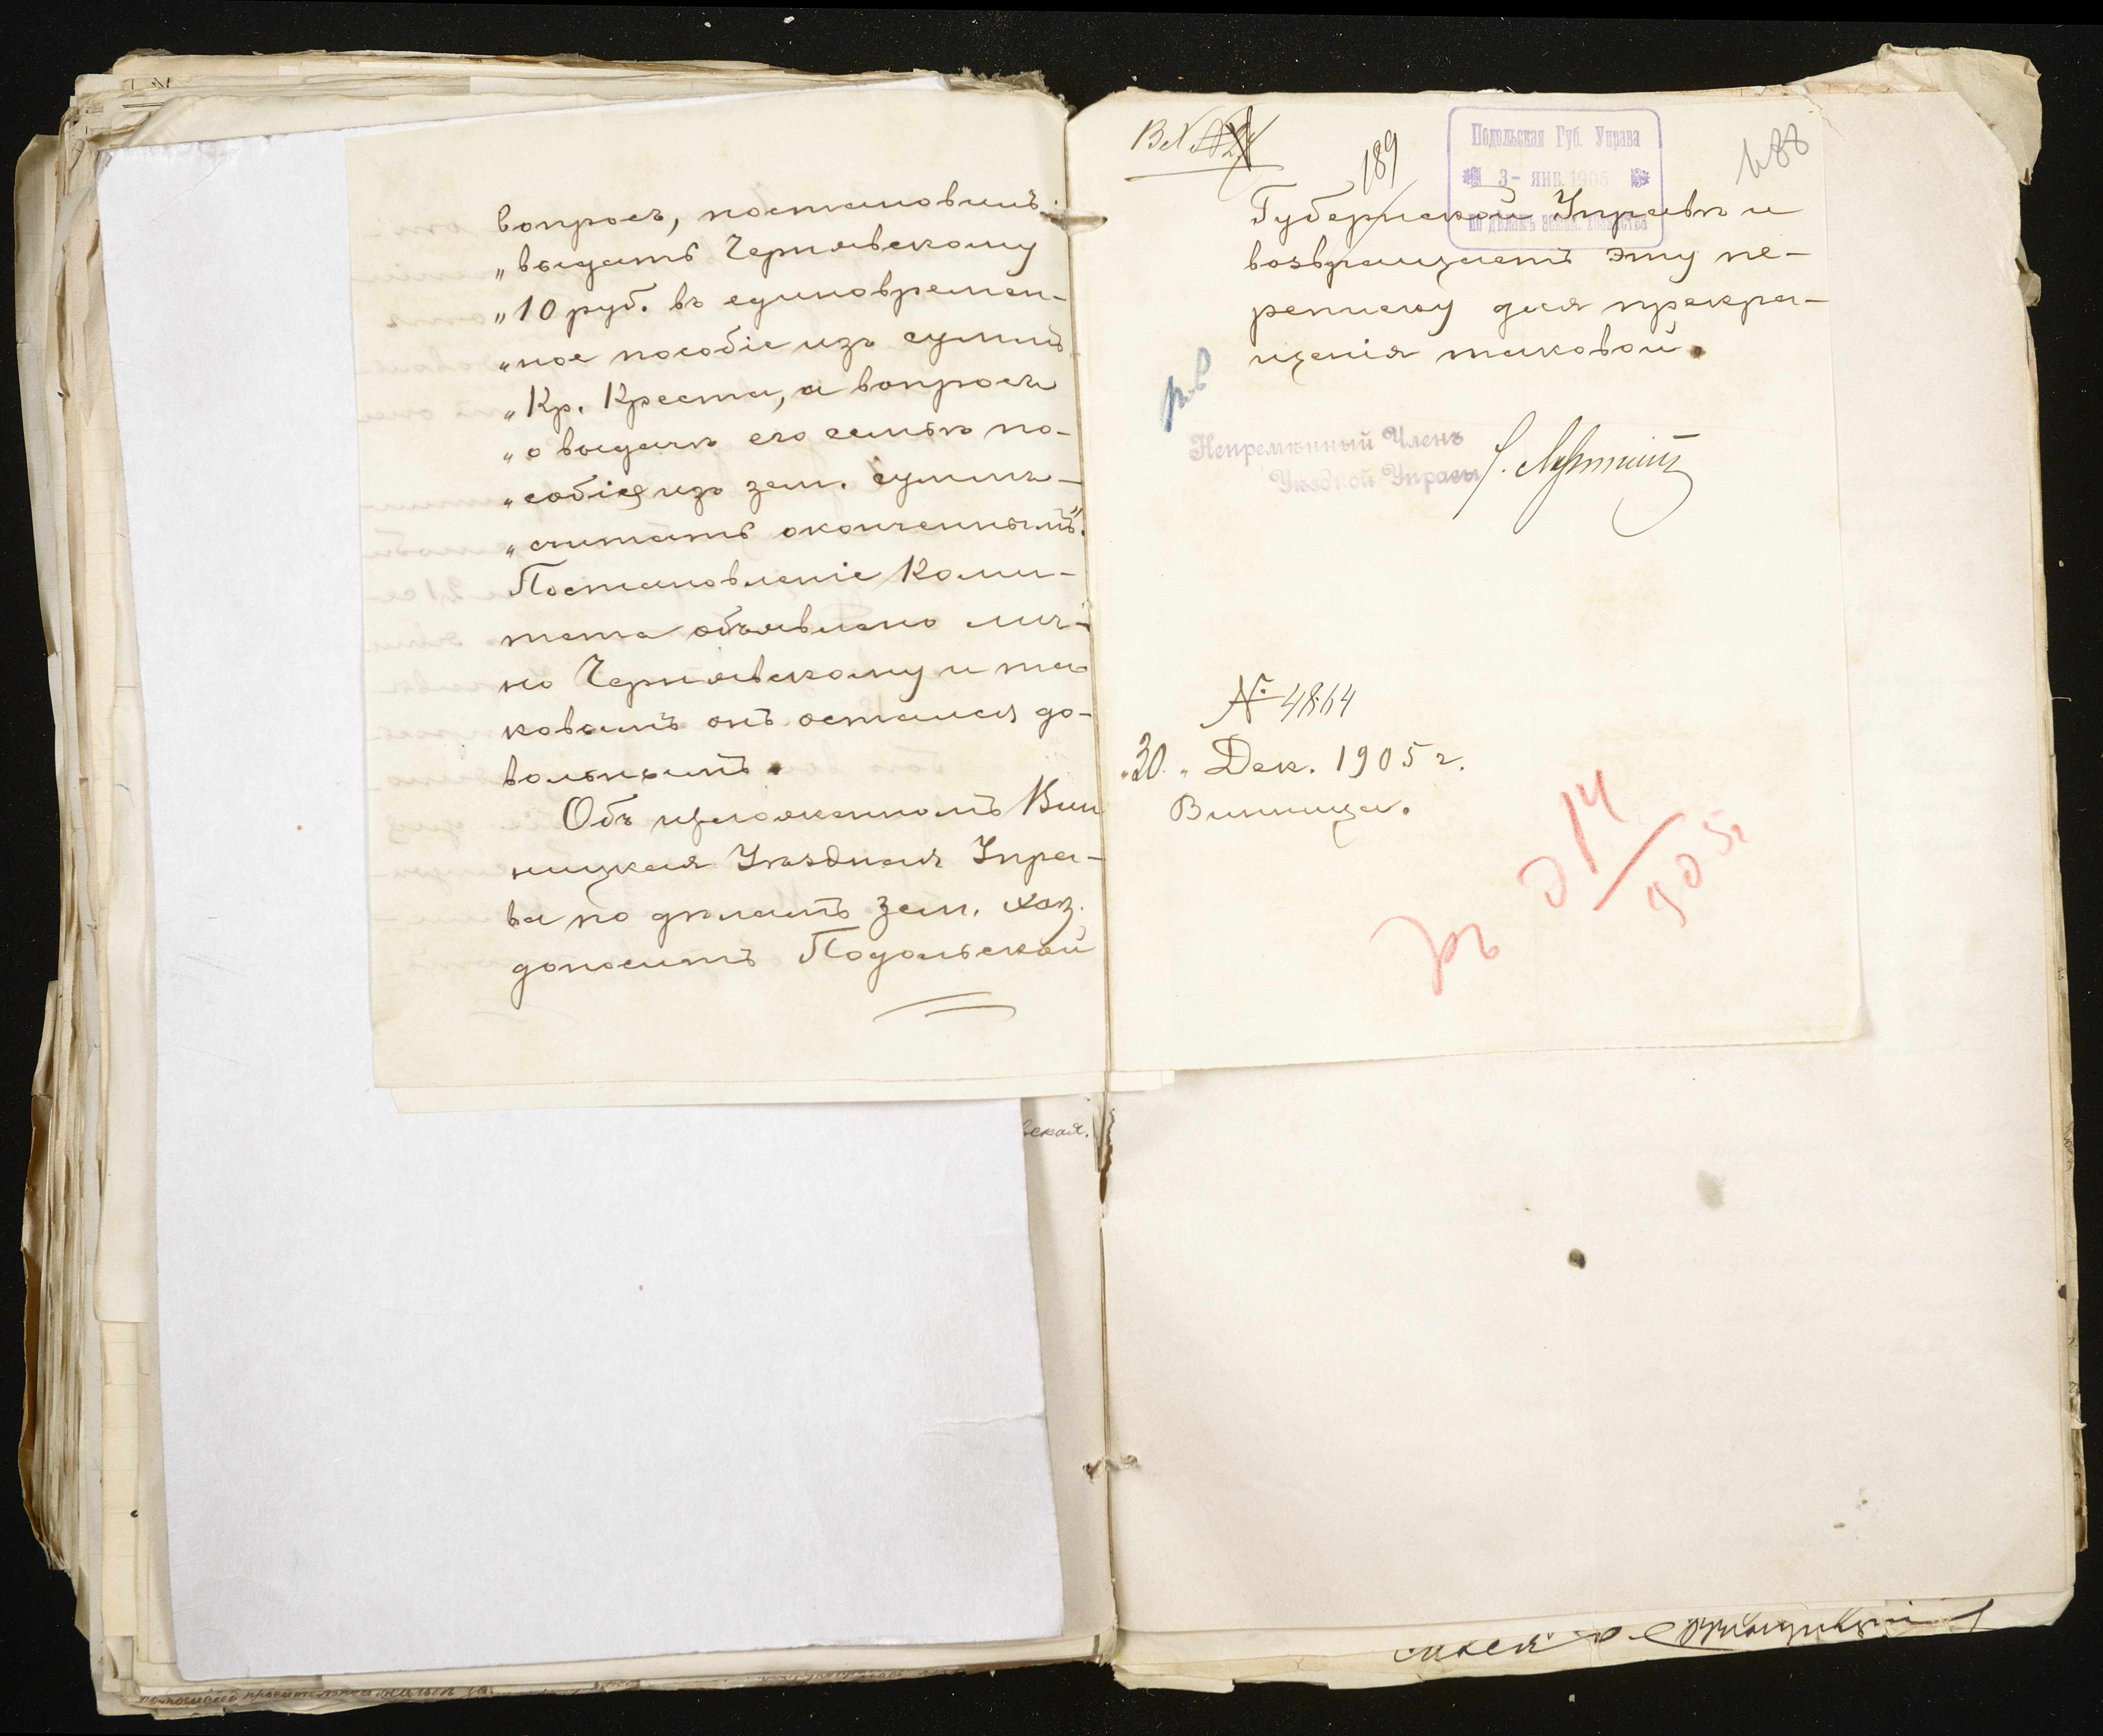 вопросъ, постановилъ:
„выдать Чернявскому
„10 руб. въ единовремен-
„ное пособіе изъ суммъ
„Кр. Креста, а вопросъ
„о выдачѣ его семьѣ по-
„собія изъ зем. суммъ—
„считать оконченнымъ".
Постановленіе Коми-
тета объявлено лич-
но Чернявскому и та
ковымъ онъ остался до-
вольнымъ.
Объ изложенномъ Вин
ницкая Уѣздная Упра-
ва по дѣламъ Зем. хоз.
доноситъ Подольской
вская.
189
Подольская Губ. Управа
3- ЯНВ. 1906
по дѣламъ земск. хозяйства
488
Губернской Управѣ и
возвращаетъ эту пе-
реписку для прекра-
щенія таковой.
Непремѣнный Членъ
Уѣздной Управы
№ 4864
„30„ Дек. 1905 г.
Винница.